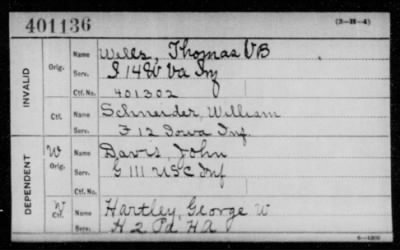 401136 (3-H-4)
INVALID
Orig. Name Wells, Thomas V B
Serv. I 14 W Va Inf
Ctf. No. 401302
Ctf. Name Schneider, William
Serv. F 12 Iowa Inf.
DEPENDENT
W Orig. Name Davis, John
Serv. G 111 USC Inf
Ctf. No.
W Ctf. Name Hartley, George W
Serv. H 2 Pa H A